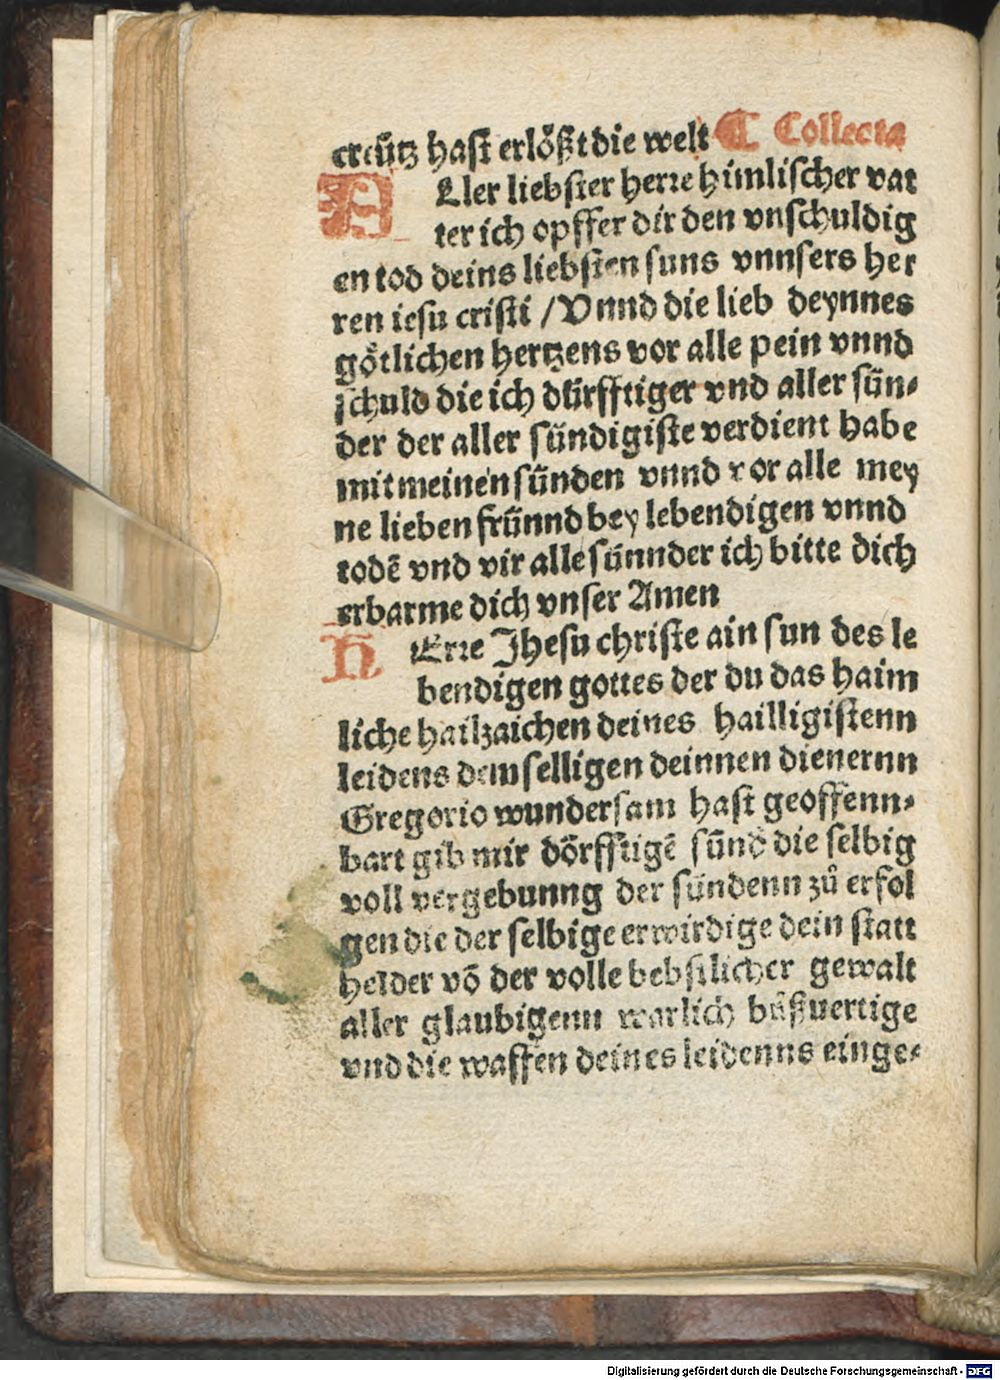 creütz hast erlößt die welt ¶ Collecta
ALler liebster herre himlischer vat
ter ich opffer dir den vnschuldig
en tod deins liebsten suns vnnsers her
ren iesu cristi / Vnnd die lieb deynnes
götlichen hertzens vor alle pein vnnd
schuld die ich dürfftiger vnd aller sün⸗
der der aller sündigiste verdient habe
mit meinen sünden vnnd vor alle mey
ne lieben frünnd bey lebendigen vnnd
todē vnd vir alle sünnder ich bitte dich
erbarme dich vnser Amen
HErre Jhesu christe ain sun des le
bendigen gottes der du das haim
liche hailzaichen deines hailligistenn
leidens dem selligen deinnen dienernn
Gregorio wundersam hast geoffenn⸗
bart gib mir dörfftigē sünd die selbig
voll vergebunng der sündenn zů erfol
gen die der selbige erwirdige dein statt
helder vō der volle bebstlicher gewalt
aller glaubigenn warlich büßuertige
vnd die waffen deines leidenns einge⸗
Digitalisierung gefördert durch die Deutsche Forschungsgemeinschaft - DFG